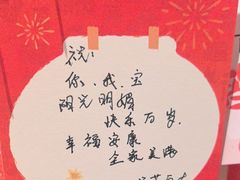 祝：
你、我、宝
阳光明媚
快乐万岁，
幸福安康
全家美满